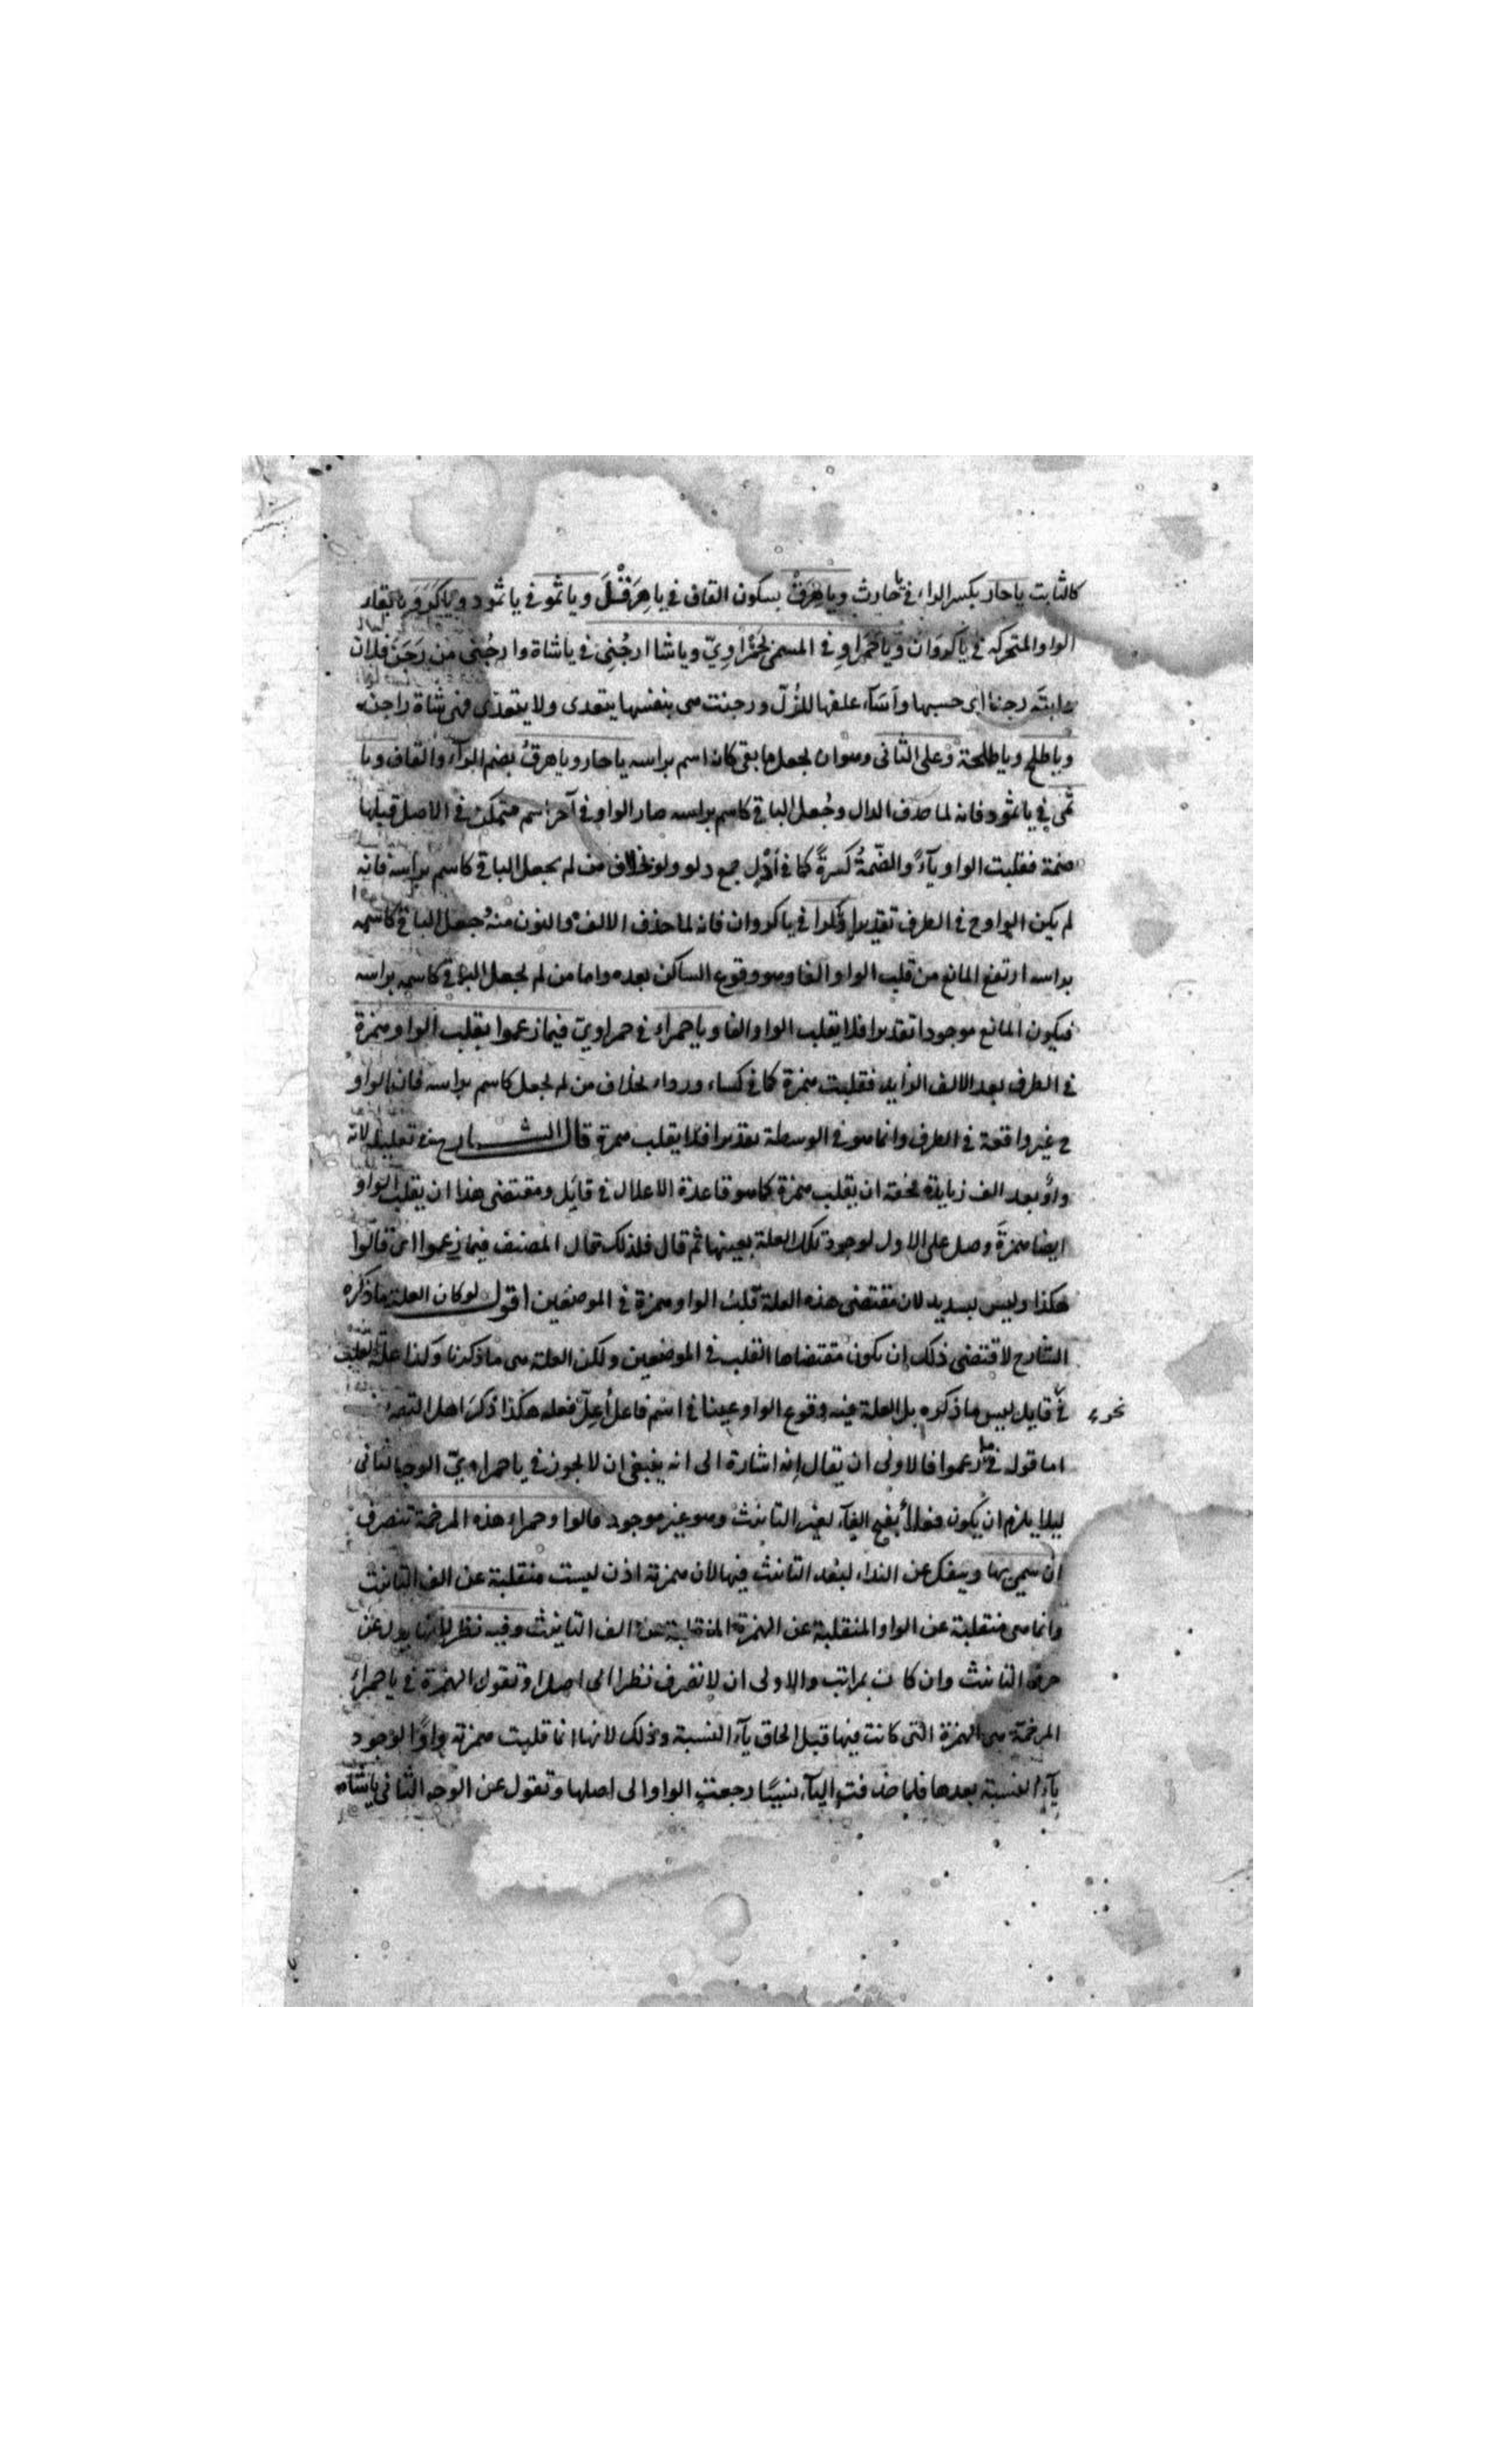 كالثابت ياحار بكسر الراء في يا حارث وياهرَقْ بسكون القاف في ياهِرَقْلَ وياثمو في ياثمود وياكَرَوَ بابقاء
الواو المتحركه في ياكروان وياحَمراوِ في المسمى بحَمْراوِيّ وياشا ارجُنِي في ياشاة وارجُنى من رَجَنَ فلان
دابته رجنا اى حبسها واَسَآء علفها للزُلّ ورجنت هى بنفسها يتعدى ولا يتعدّى فهى شاة راجن
وياطلح وياطلحة وعلى الثانى وهو ان يجعل ما بقى كانه اسم براسه ياحار وياهرقُ بضم الراء والقاف ويا
ثمى في ياثمود فانه لما حذف الدال وجُعل الباقي كاسم براسه صار الواو في آخر اسم متمكن في الاصل قبلها
ضمة فقلبت الواو يآءً والضّمةُ كسرةً كما في اَدْلٍ جمع دلو بخلاف من لم يجعل الباقي كاسم براسه فانه
لم يكن الواو ح في الطرف تقديرا وكرا في ياكروان فانه لما حذف الالف والنون منه وجعل الباقي كاسم
براسه ارتفع المانع من قلب الواو الفا وهو وقوع الساكن بعده واما من لم يجعل الباقي كاسم براسه
فيكون المانع موجودا تقديرا فلا يقلب الواو الفا وياحمراء في حمراويّ فيما زعموا بقلب الواو همزة
في الطرف بعد الالف الزايد فقلبت همزة كما في كساء ورداء بخلاف من لم يجعل كاسم براسه فان الواو
ح غير واقعة في الطرف وانما هو في الوسط تقديرا فلا يقلب همزة قال الشارح في تعليله لانه
واوٌ بعد الف زيادة فحقه ان يقلب همزة كما هو قاعدة الاعلال في قائل ومقتضى هذا ان يقلب الواو
ايضا همزةَ وصل على الاول لوجود تلك العلة بعينها ثم قال فلذلك قال المصنف فيما زعموا اى قالوا
هكذا وليس بسديد لان مقتضى هذه العلة قلب الواو همزة في الموضعين اقول لو كان العلة ما ذكره
الشارح لاقتضى ذلك ان يكون مقتضاها القلب في الموضعين ولكن العلة هى ما ذكرنا وكذا علة القلب
في نحو قايل ليس ما ذكره بل العلة فيه وقوع الواو عينا في اسم فاعل اُعِلّ فعله هكذا ذكره اهل التصريف
اما قوله فيما زعموا فالاولى ان يقال انه اشارة الى انه ينبغى ان لا يجوز في ياحمراويّ الوجه الثانى
ليلا يلزم ان يكون فعلاءُ بفتح الفآء لغير التانيث وهو غير موجود قالوا وحمراء هذه المرخمة تنصرف
ان سمى بها وينفك عن النداء لبُعد التانيث فيها لان همزته اذن ليست منقلبة عن الف التانيث
وانما هى منقلبة عن الواو المنقلبة عن الهمزة المنقلبة عن الف التانيث وفيه نظر لانها بدل عن
حرف التانيث وان كانت بمراتب والاولى ان لا تصرف نظرا الى اصلها وتقول الهمزة في ياحمراءُ
المرخمة هى الهمزة التى كانت فيها قبل الحاق يآء النسبة وذلك لانها انما قلبت همزته واوًا لوجود
يآء النسبة بعدها فلما حذفت اليآء نسيًا رجعت الواو الى اصلها وتقول عن الوجه الثانى ياشاه